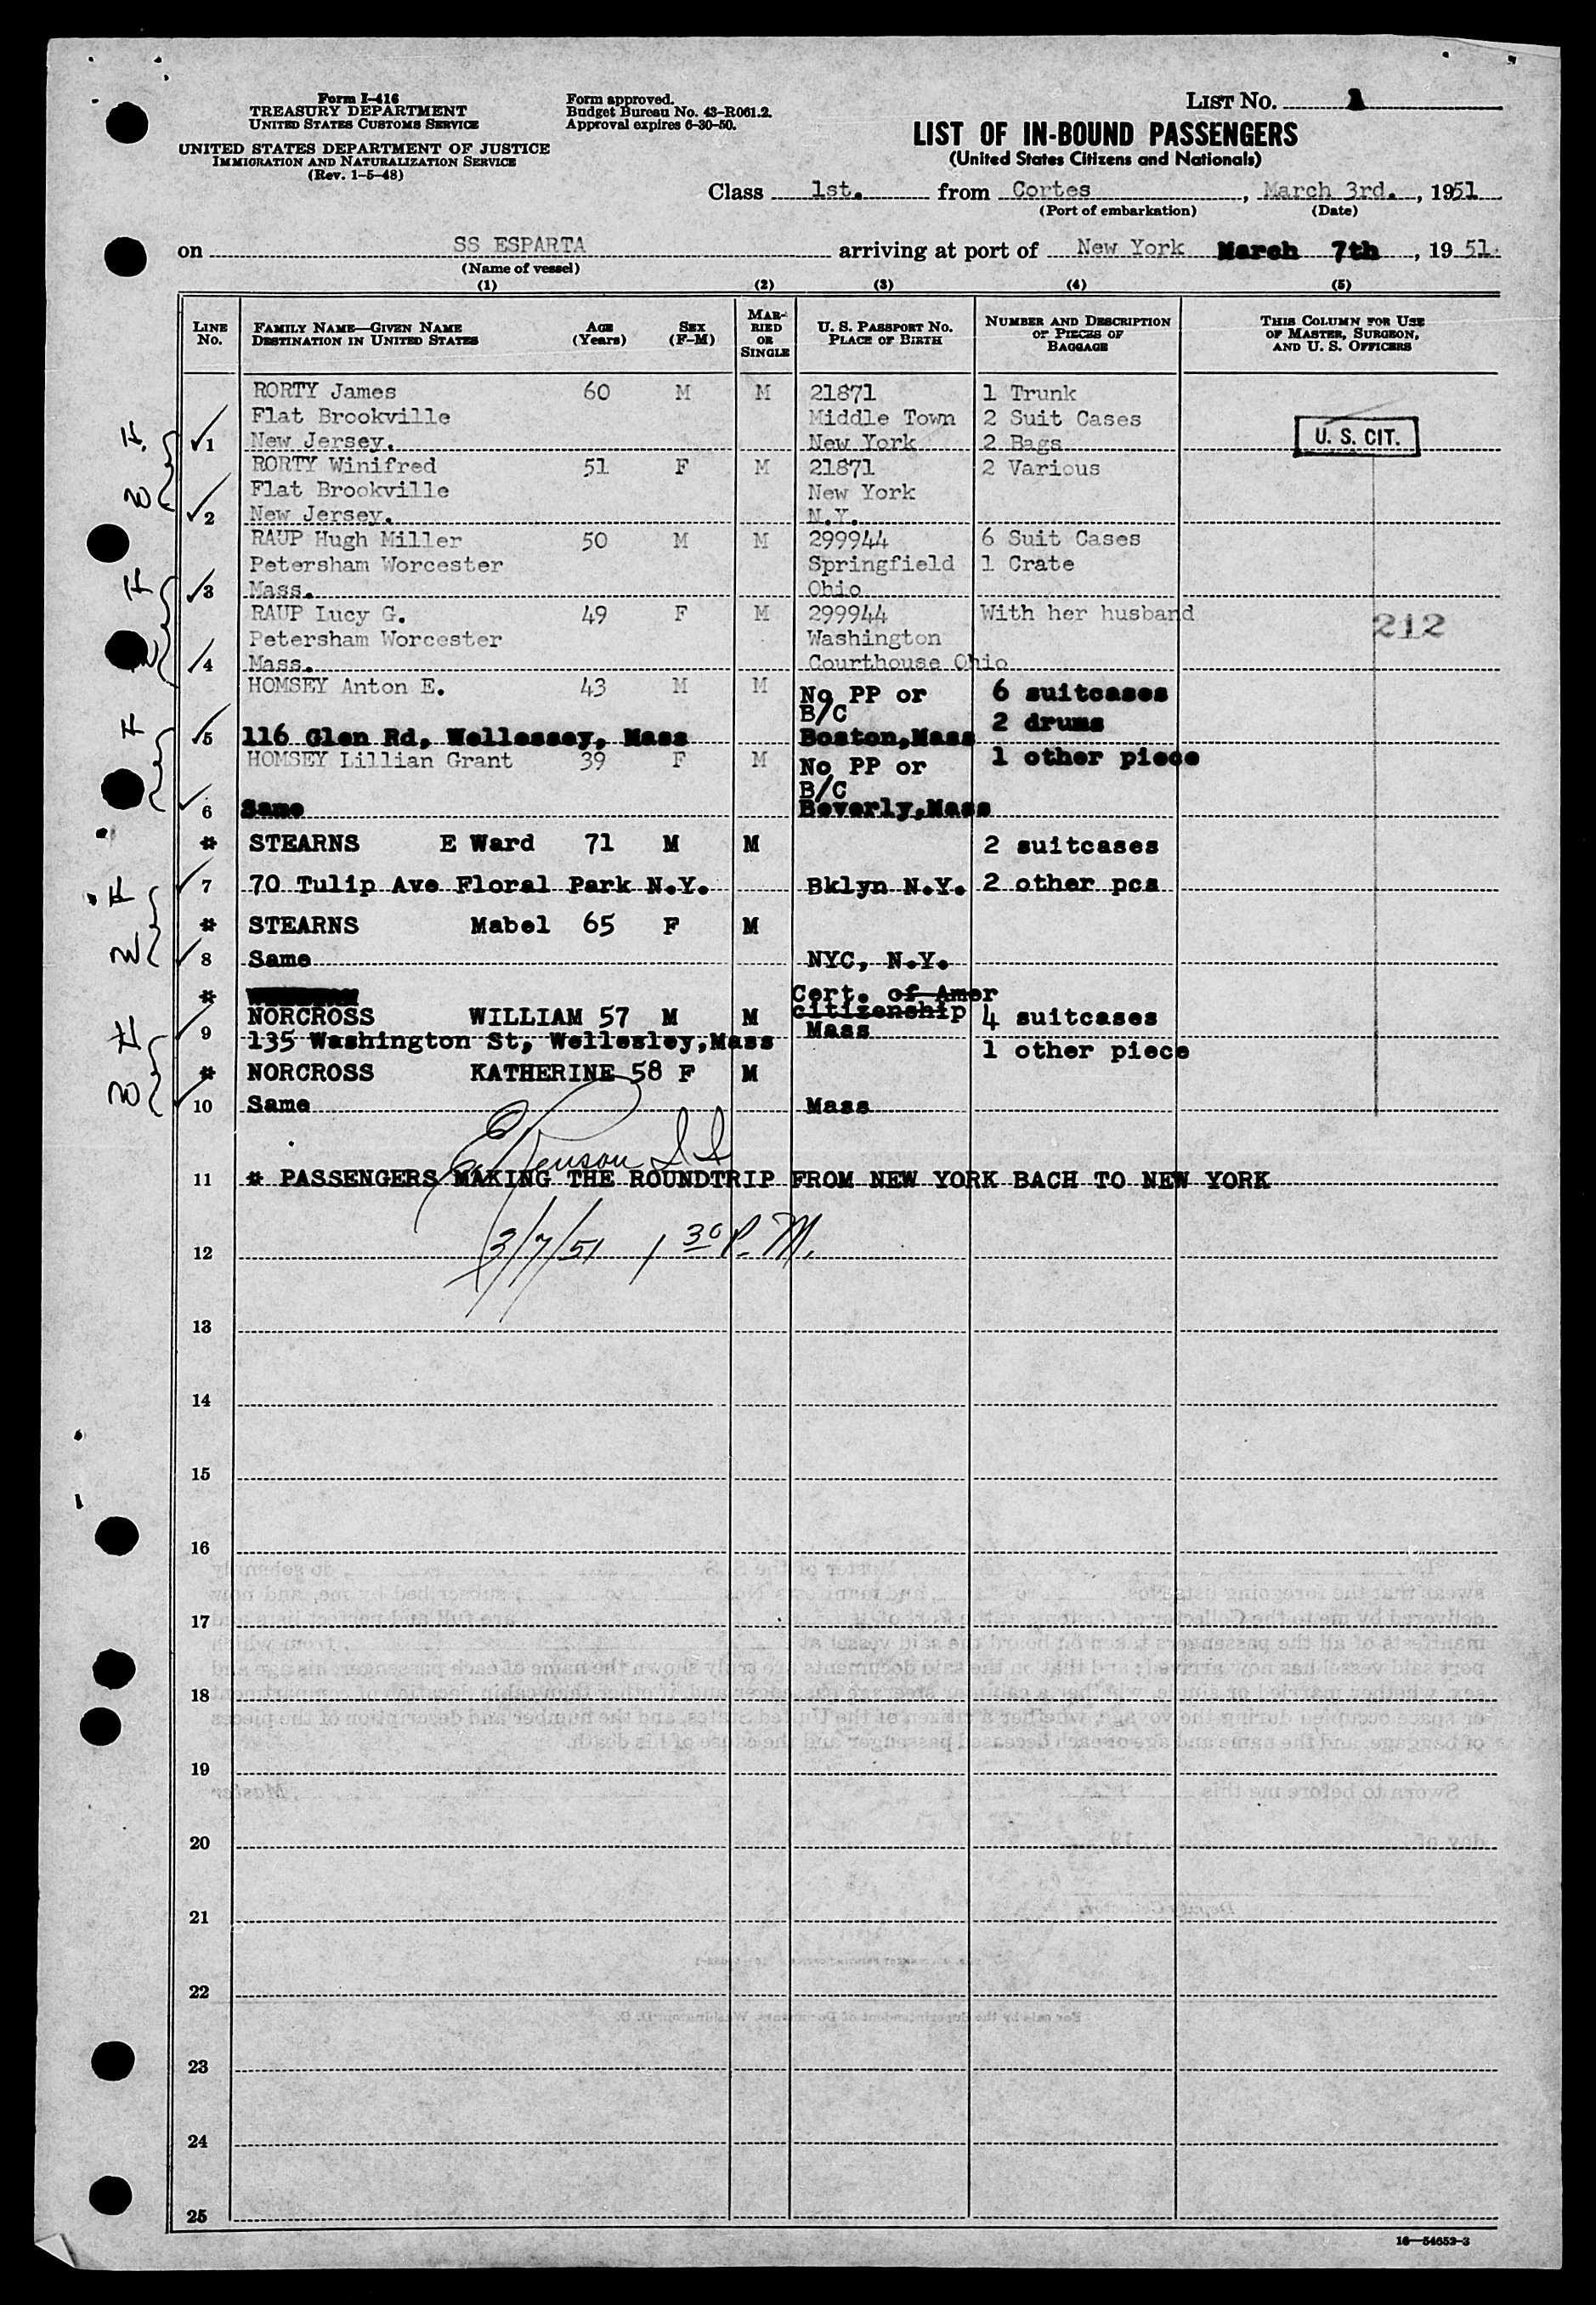 Form I-416
TREASURY DEPARTMENT
UNITED STATES CUSTOMS SERVICE
UNITED STATES DEPARTMENT OF JUSTICE
IMMIGRATION AND NATURALIZATION SERVICE
(Rev. 1-5-48)
Form approved.
Budget Bureau No. 43-R061.2.
Approval expires 6-30-50.
LIST NO. 1
LIST OF IN-BOUND PASSENGERS
(United States Citizens and Nationals)
Class 1st. from Cortes, March 3rd., 1951
(Port of embarkation) (Date)
on SS ESPARTA arriving at port of New York March 7th, 1951.
(Name of vessel)
(1) (2) (3) (4) (5)
LINE NO. FAMILY NAME—GIVEN NAME DESTINATION IN UNITED STATES AGE (Years) SEX (F-M) MARRIED OR SINGLE U. S. PASSPORT NO. PLACE OF BIRTH NUMBER AND DESCRIPTION OF PIECES OF BAGGAGE THIS COLUMN FOR USE OF MASTER, SURGEON, AND U. S. OFFICERS
RORTY James 60 M M 21871 1 Trunk
Flat Brookville Middle Town 2 Suit Cases
1 New Jersey. New York 2 Bags U. S. CIT.
RORTY Winifred 51 F M 21871 2 Various
Flat Brookville New York
2 New Jersey. N.Y.
RAUP Hugh Miller 50 M M 299944 6 Suit Cases
Petersham Worcester Springfield 1 Crate
3 Mass. Ohio
RAUP Lucy G. 49 F M 299944 With her husband 212
Petersham Worcester Washington
4 Mass. Courthouse Ohio
HOMSEY Anton E. 43 M M No PP or 6 suitcases
B/C 2 drums
5 116 Glen Rd, Wellessey, Mass Boston,Mass
HOMSEY Lillian Grant 39 F M No PP or 1 other piece
B/C
6 Same Beverly,Mass
* STEARNS E Ward 71 M M 2 suitcases
7 70 Tulip Ave Floral Park N.Y. Bklyn N.Y. 2 other pcs
* STEARNS Mabel 65 F M
8 Same NYC, N.Y.
* Cert. of Amer
citizenship
NORCROSS WILLIAM 57 M M 4 suitcases
9 135 Washington St, Wellesley,Mass Mass
1 other piece
* NORCROSS KATHERINE 58 F M
10 Same Mass
11 * PASSENGERS MAKING THE ROUNDTRIP FROM NEW YORK BACH TO NEW YORK
12 3/7/51 1 30 P.M.
13
14
15
16
17
18
19
20
21
22
23
24
25
16—54652-3